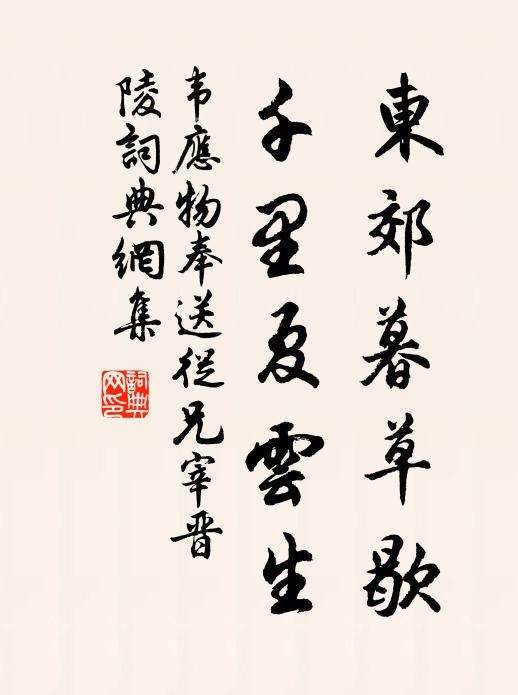 東郊暮草歇
千里夏雲生
韦應物奉送從兄宰晋
陵詞典網集
詞典网印